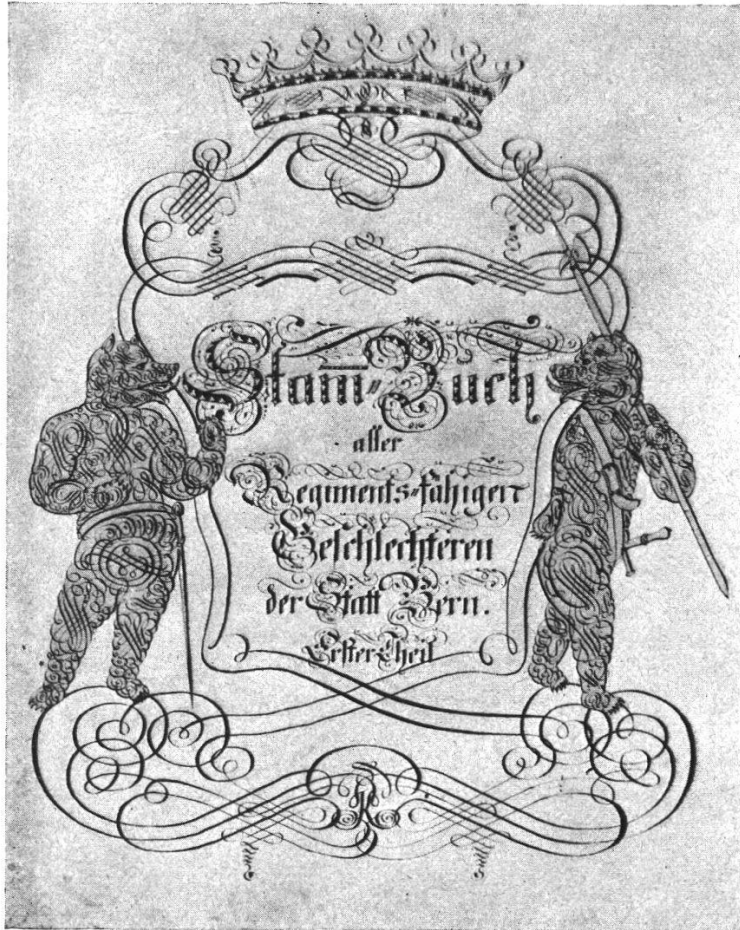 Stam̅=Buch
aller
Regiments=fähigen
Geschlechteren
der Statt Bern.
Erster Theil